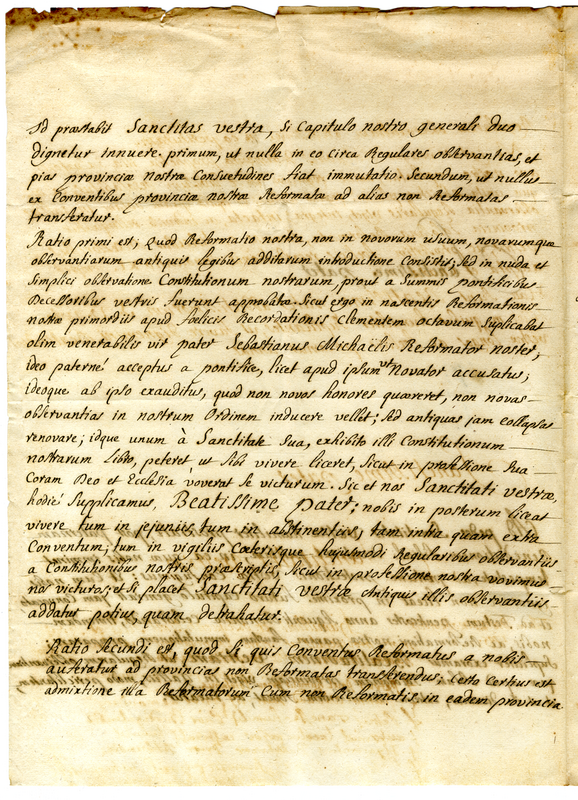 Id præstabit Sanctitas vestra, Si Capitulo nostro generali duo
dignetur innuere. primum, ut nulla in eo circa Regulares observantias, et
pias provinciæ nostræ Consuetudines fiat immutatio. Secundum, ut nullus
ex Conventibus provinciæ nostræ Reformatæ ad alias non Reformatas
transferatur.
Ratio primi est; quod Reformatio nostra, non in novorum usuum, novarumque
observantiarum antiquis legibus additarum introductione Consistit; Sed in nuda et
Simplici observatione Constitutionum nostrarum, prout a Summis pontificibus
Decessoribus vestris fuerunt approbatæ. Sicut ergo in nascentis Reformationis
nostræ primordiis apud fœlicis Recordationis Clementem octavum Suplicabat
olim venerabilis vir pater Sebastianus Michaelis Reformator noster;
ideo paternè acceptus a pontifice, licet apud ipsum ut Novator accusatus;
ideoque ab ipso exauditus, quod non novos honores quæreret, non novas
observantias in nostrum Ordinem inducere vellet; Sed antiquas jam collapsas
renovare; idque unum à Sanctitate Sua, exhibito illi Constitutionum
nostrarum libro, peteret, ut Sibi vivere liceret, Sicut in professione Sua
Coram Deo et Ecclesia voverat se victurum. Sic et nos Sanctitati vestræ,
hodiè Supplicamus, Beatissime pater; nobis in posterum liceat
vivere tum in jejuniis, tum in abstinentiis; tam intra quam extra
Conventum; tum in vigiliis Cæterisque hujusmodi Regularibus observantiis
a Constitutionibus nostris præscriptis, Sicut in professione nostra vovimus
nos victuros; et Si placet Sanctitati vestræ Antiquis illis observantiis
addatur potius, quam detrahatur.
Ratio Secundi est, quod Si quis Conventus Reformatus a nobis
auferatur ad provincias non Reformatas transferendus; Certo Certius est
admixtione illa Reformatorum Cum non Reformatis in eadem provincia